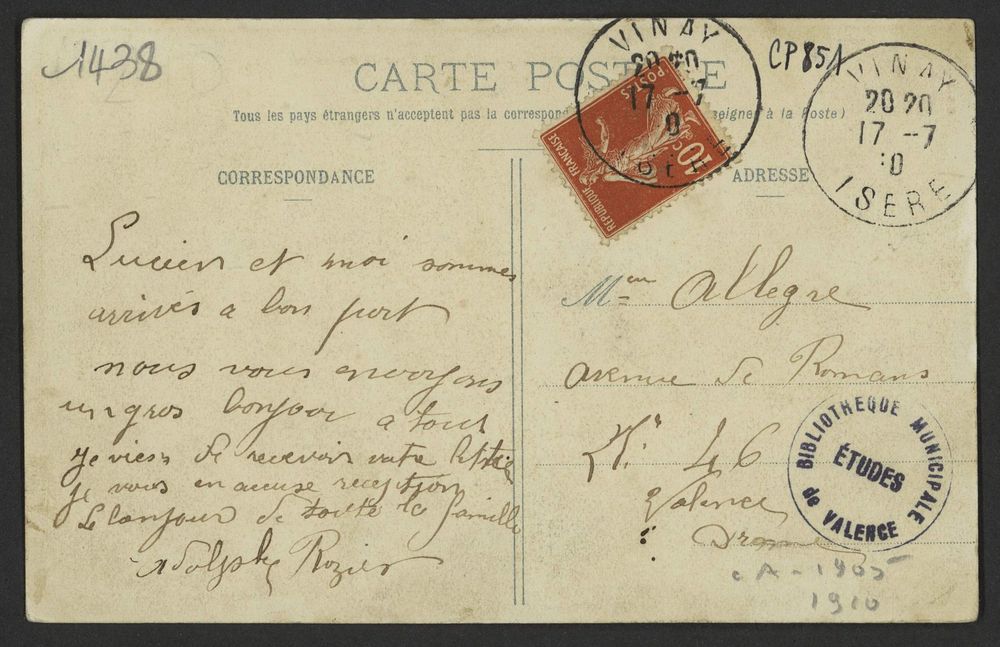 1438
CP 851
CARTE POSTALE
Tous les pays étrangers n'acceptent pas la correspon seigner à la Poste)
VINAY
20 20
17 -7
10
ISERE
VINAY
20 20
17 -7
10
ISERE
POSTES
10c
REPUBLIQUE FRANÇAISE
CORRESPONDANCE
Lucien et moi sommes
arrivés a bon port
nous vous envoyons
un gros bonjour a tous
je viens de recevoir votre
je vous en accuse reception
Le bonjour de toute la famille
Adolphe Rozier
ADRESSE
Mme Allegre
avenue de Romans
N° 46
Valence
Drome
BIBLIOTHEQUE MUNICIPALE
ÉTUDES
de VALENCE
CA - 1905
1910